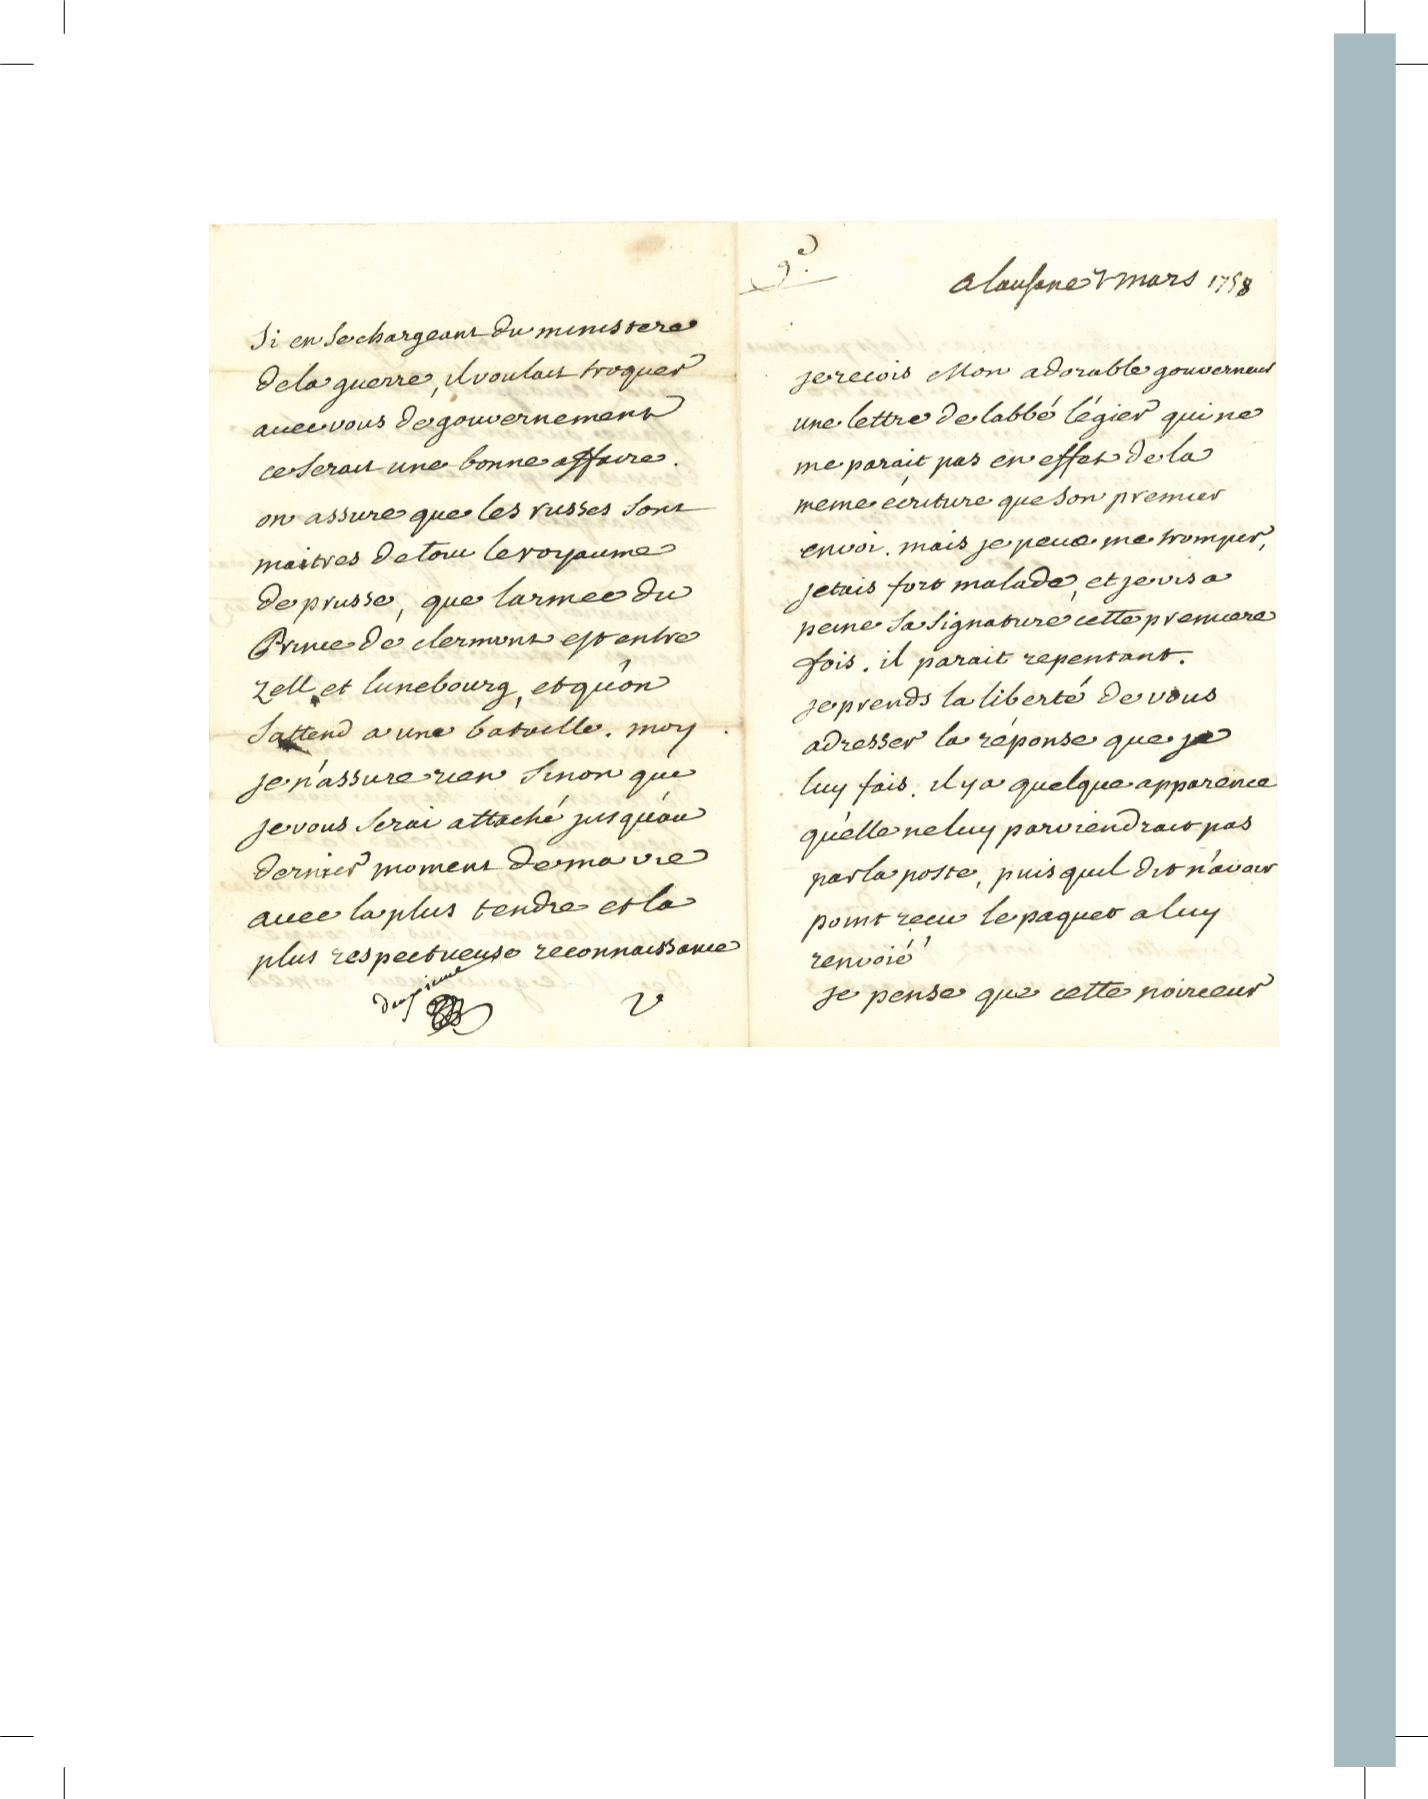 Si en se chargeant du ministere
de la guerre, il voulait troquer
avec vous de gouvernement
ce serait une bonne affaire.
on assure que les russes sont
maitres de tout le royaume
de prusse, que larmee du
Prince de clermont est entre
zell et lunebourg, et qu'on
sattend a une bataille. moy
je n'assure rien sinon que
je vous serai attaché jusqu'au
dernier moment de ma vie
avec la plus tendre et la
plus respectueuse reconnaissance
V
9.
a lausane mars 1758
je recois Mon adorable gouverneur
une lettre de labbé légier qui ne
me parait pas en effet de la
meme écriture que son premier
envoi. mais je peux me tromper,
jetais fort malade, et je vis a
peine sa signature cette premiere
fois. il parait repentant.
je prends la liberté de vous
adresser la réponse que je
luy fais. il y a quelque apparence
qu'elle ne luy parviendrait pas
par la poste, puis quil dit n'avoir
point recu le paquet a luy
renvoié
je pense que cette noirceur